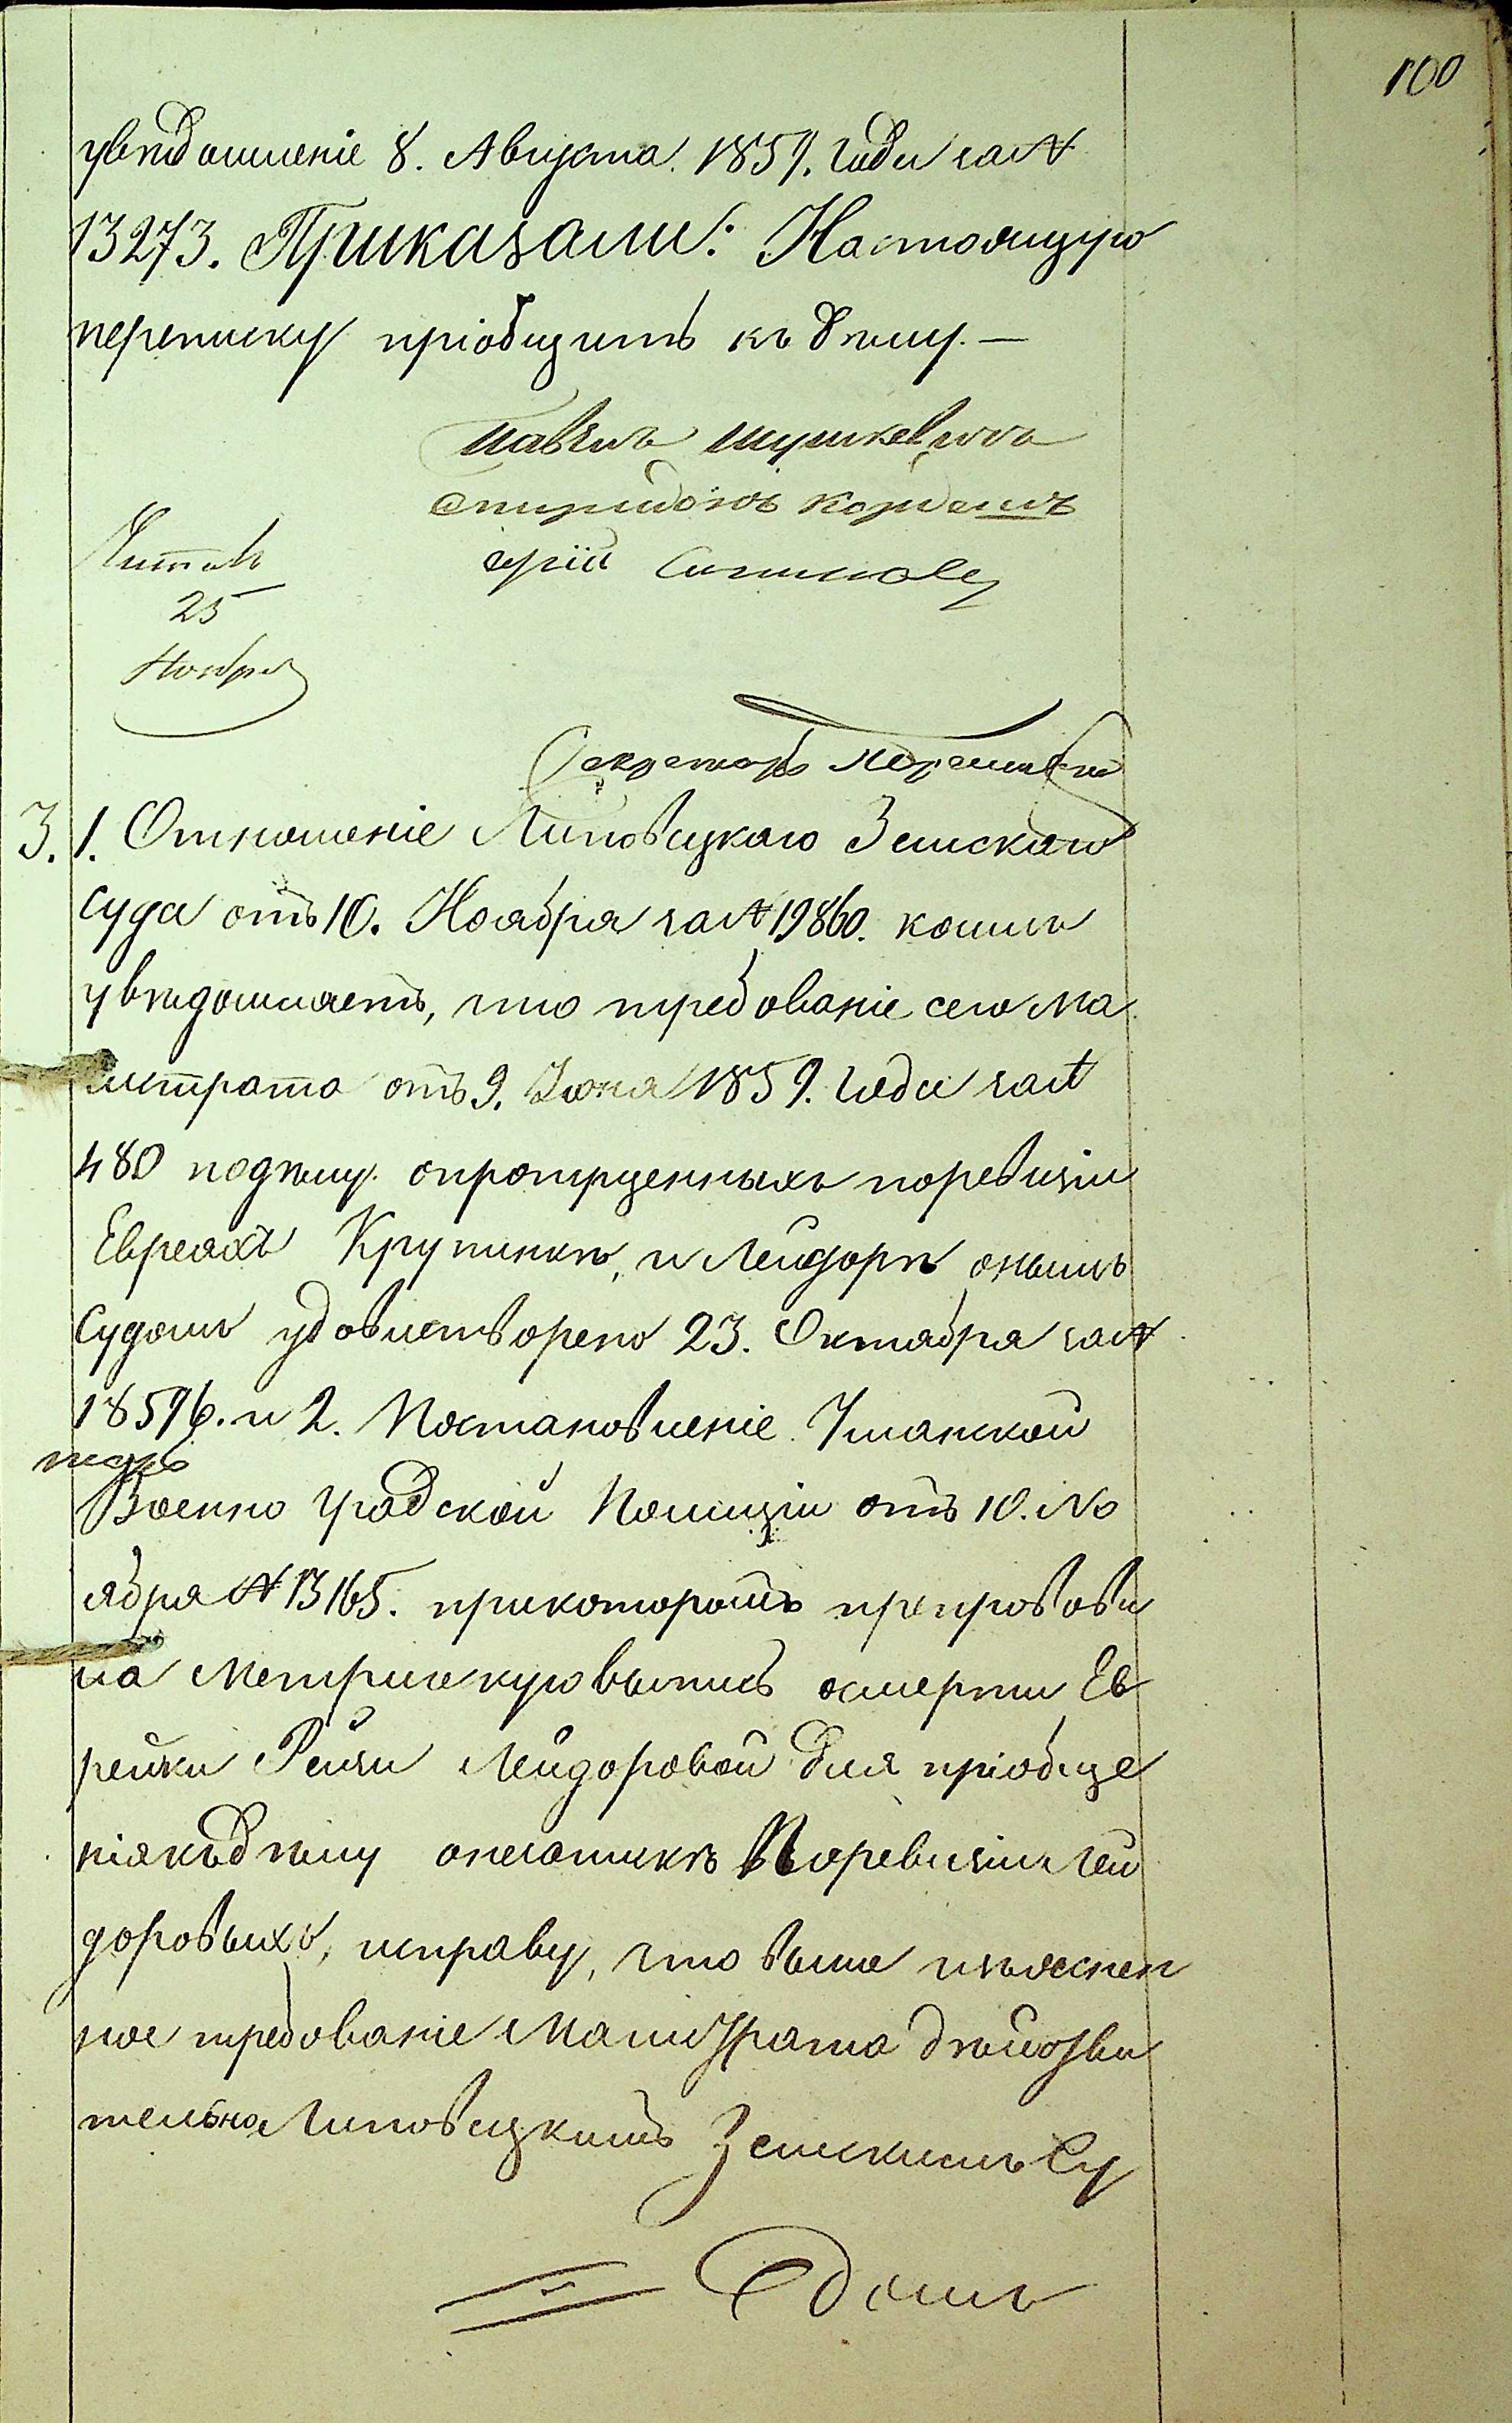 100
увѣдомленіе 8. Августа 1859. года за №
13273. Приказали: Настоящую
переписку пріобщить къ дѣлу. —
Павелъ
Спиридонъ
Юрій
Читалъ
25
Ноября
Секретарь
3. 1. Отношеніе Липовецкаго Земскаго
Суда отъ 10. Ноября за № 19860. коимъ
увѣдомляетъ, что требованіе сего Ма
гистрата отъ 9. Іюня 1859. года за №
480 подѣлу опропущенныхъ поревизіи
Евреяхъ Крупникѣ, и Лейдорѣ онымъ
Судомъ удовлетворено 23. Октября за №
18596. и 2. Постановленіе Уманской
Военно Градской Полиціи отъ 10. Но
ября № 13165. прикоторомъ препровожде
на Метрическую выпись осмерти Ев
рейки Рейзи Лейдоровой для пріобще
ніякъ дѣлу опропускѣ поревизіи Лей
доровыхъ, исправу, что выше изъяснен
ное требованіе Магистрата дѣйстви
тельно Липовецкимъ Земскимъ Су
= домъ